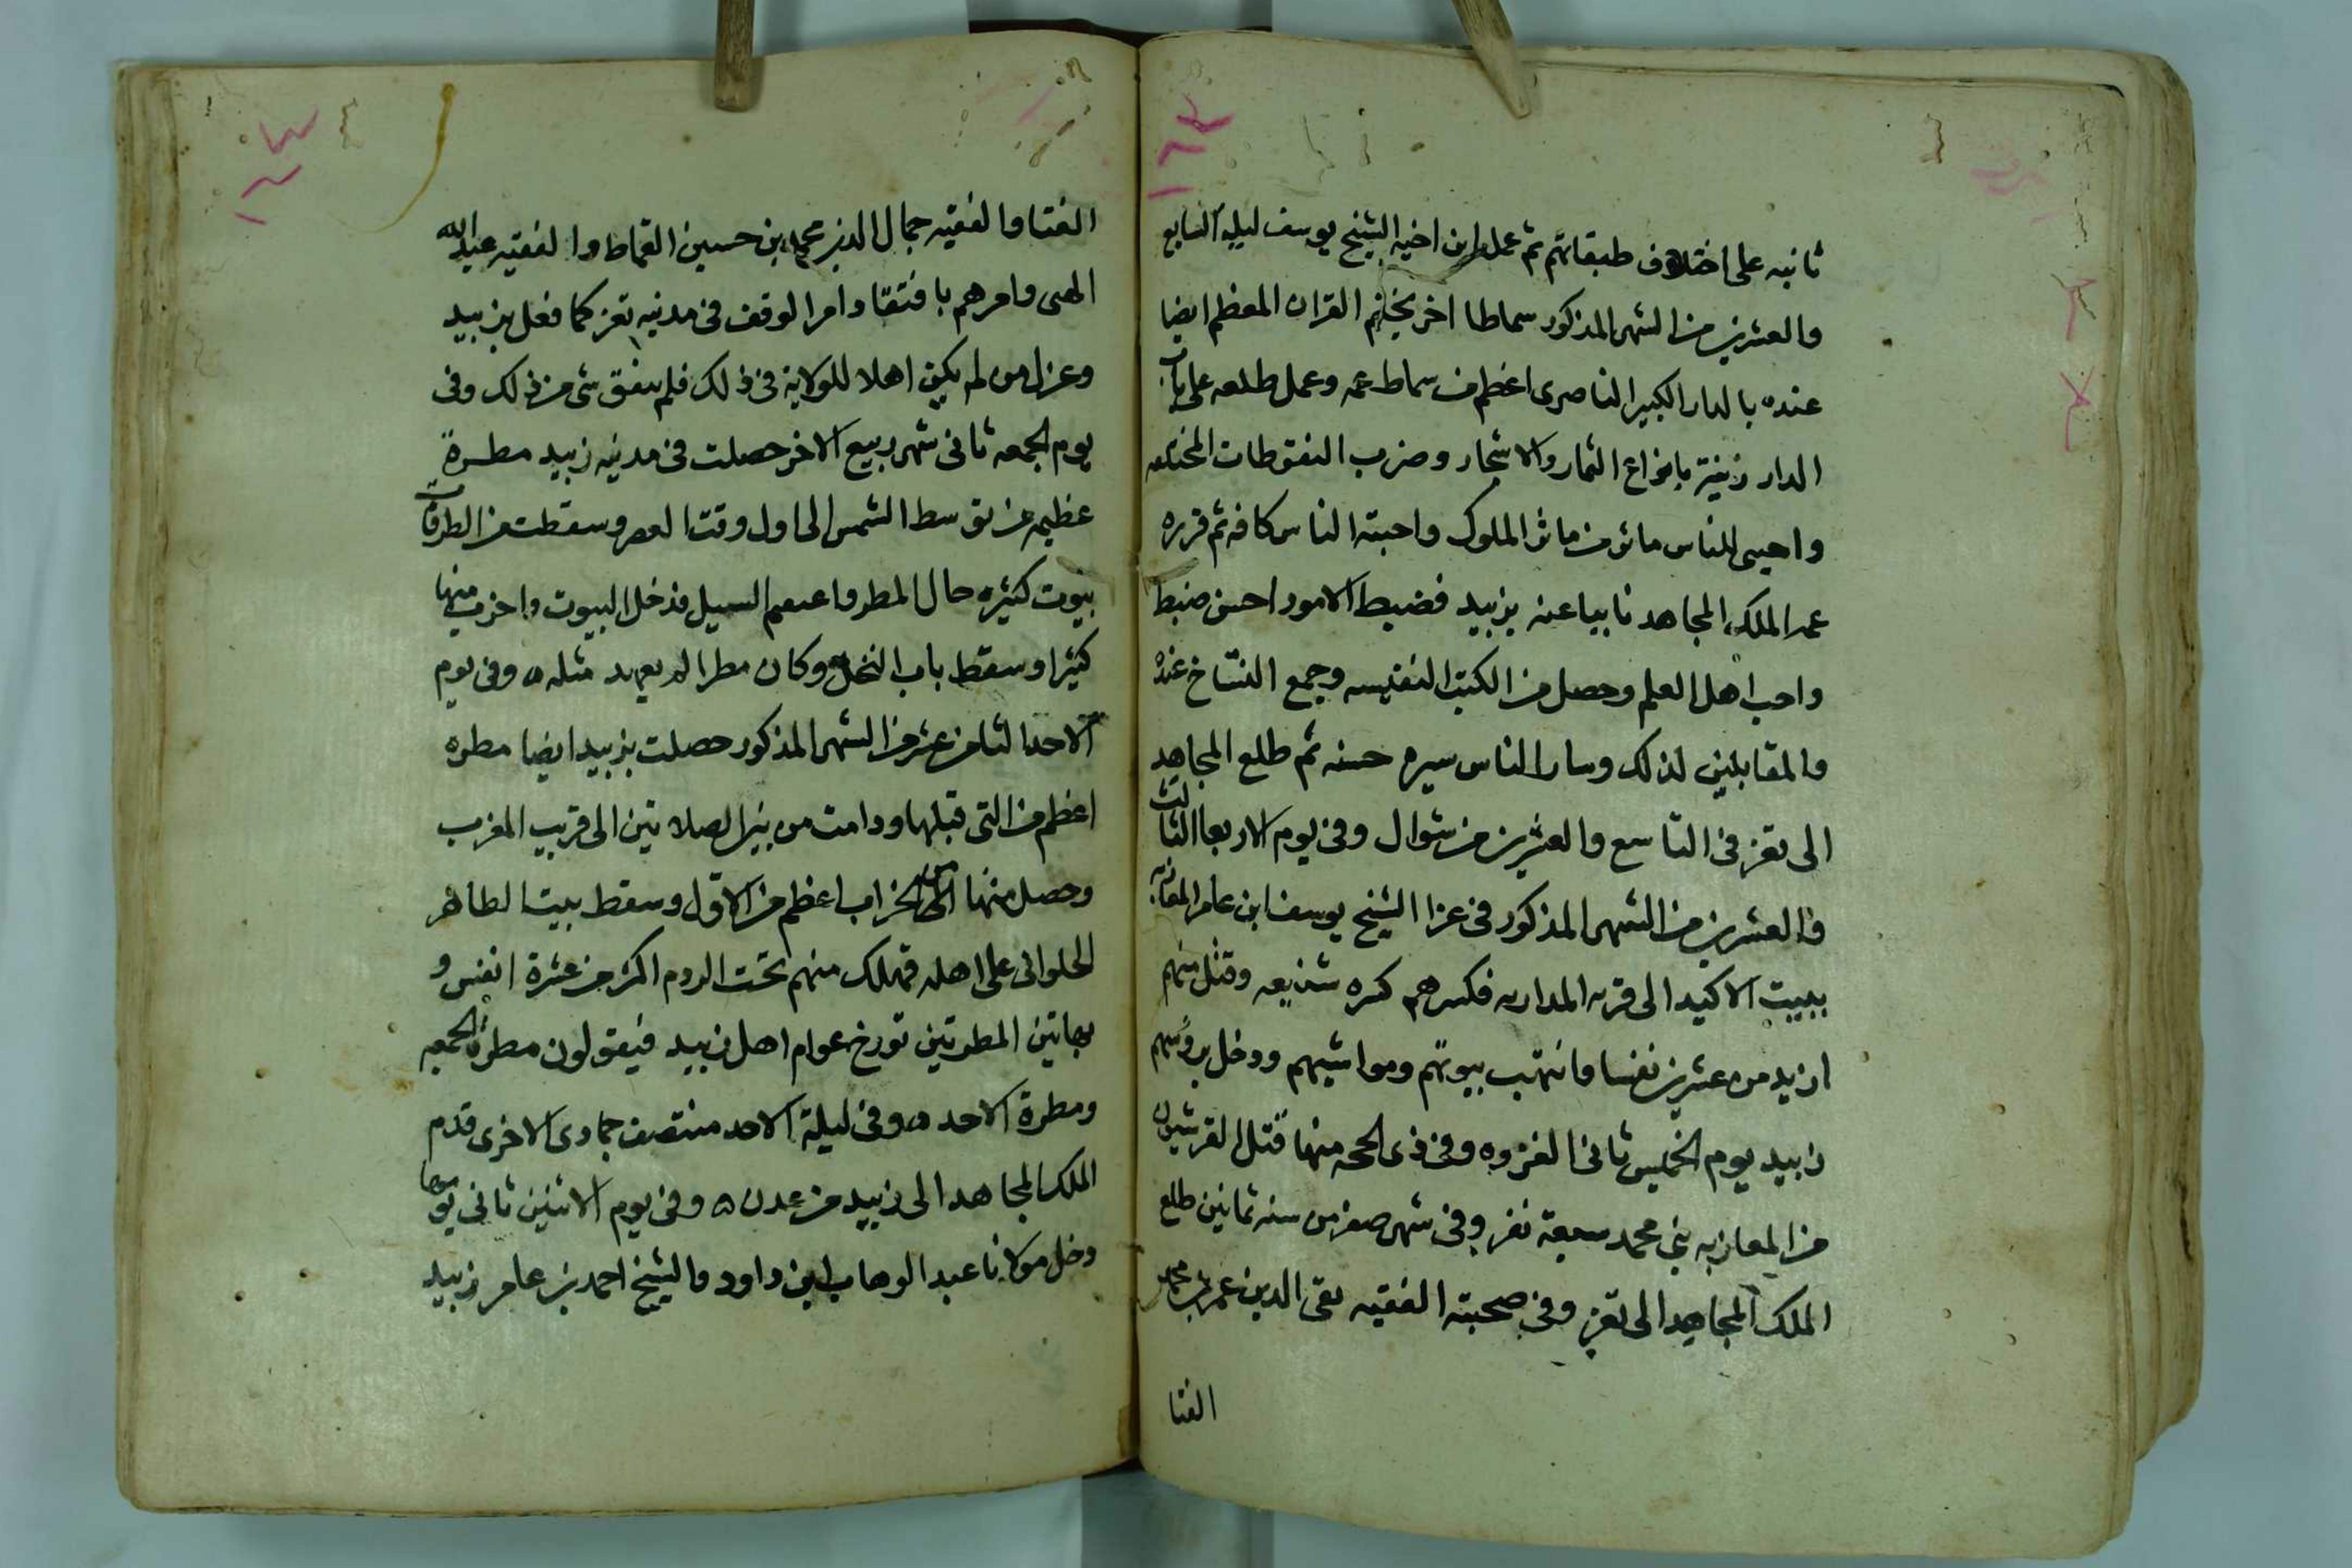 ثانيه على اختلاف طبقاتهم ثم عمل ابن اخيه الشيخ يوسف ليلة السابع
والعشرين من الشهر المذكور سماطا اخر بختم القران المعظم ايضا
عنده بالدار الكبير الناصرى اعظم من سماط عمه وعمل طلعه على باب
الدار زينة بانواع الثمار والاشجار وضرب النفوطات المختلفه
واحيى للناس ماثر من ماثر الملوك واحبته الناس كافه ثم قرره
عمه الملك المجاهد نايبا عنه بزبيد فضبط الامور احسن ضبط
واحب اهل العلم وحصل من الكتب النفيسه وجمع النساخ عنده
والمقابلين لذلك وسار الناس سيره حسنه ثم طلع المجاهد
الى تعز فى التاسع والعشرين من شوال وفى يوم الاربعا الثالث
والعشرين من الشهر المذكور فى غزا الشيخ يوسف ابن عامر المعازبه
ببيت الاكيد الى قريه المداريه فكسرهم كسره شنيعه وقتل منهم
ازيد من عشرين نفسا وانتهب بيوتهم ومواشيهم ودخل بروسهم
زبيد يوم الخميس ثانى الغزوه وفى ذى الحجه منها قتل القرشيون
من المعازبه بنى محمد سبعة نفر وفى شهر صفر من سنه ثمانين طلع
الملك المجاهد الى تعز وفى صحبته الفقيه تقى الدين عمر بن محمد
الفتا
الفتا والفقيه جمال الدين محمد بن حسين القماط والفقيه عبدالله
الهبى وامرهم بافتقاد امر الوقف فى مدينه تعز كما فعل بزبيد
وعزل من لم يكن اهلا للولاية فى ذلك فلم يتفق شى من ذلك وفى
يوم الجمعه ثانى شهر ربيع الاخر حصلت فى مدينه زبيد مطرة
عظيمه من توسط الشمس الى اول وقت العصر وسقطت من الطرقات
بيوت كثيره حال المطر واعقبهم السيل فدخل البيوت واخرب منها
كثيرا وسقط باب النخل وكان مطرا لم يعهد مثله ه وفى يوم
الاحد الثامن عشر من الشهر المذكور حصلت بزبيد ايضا مطره
اعظم من التى قبلها ودامت من بين الصلاتين الى قريب المغرب
وحصل منها من الخراب اعظم من الاول وسقط بيت الطاهر
الحلوانى على اهله فهلك منهم تحت الردم اكثر من عشرة انفس و
بهاتين المطرتين تورخ عوام اهل زبيد فيقولون مطرة الجمعه
ومطرة الاحد ه وفى ليلة الاحد منتصف جمادى الاخرى قدم
الملك المجاهد الى زبيد من عدن ه وفى يوم الاثنين ثانى يومها
دخل مولانا عبد الوهاب ابن داود والشيخ احمد بن عامر زبيد